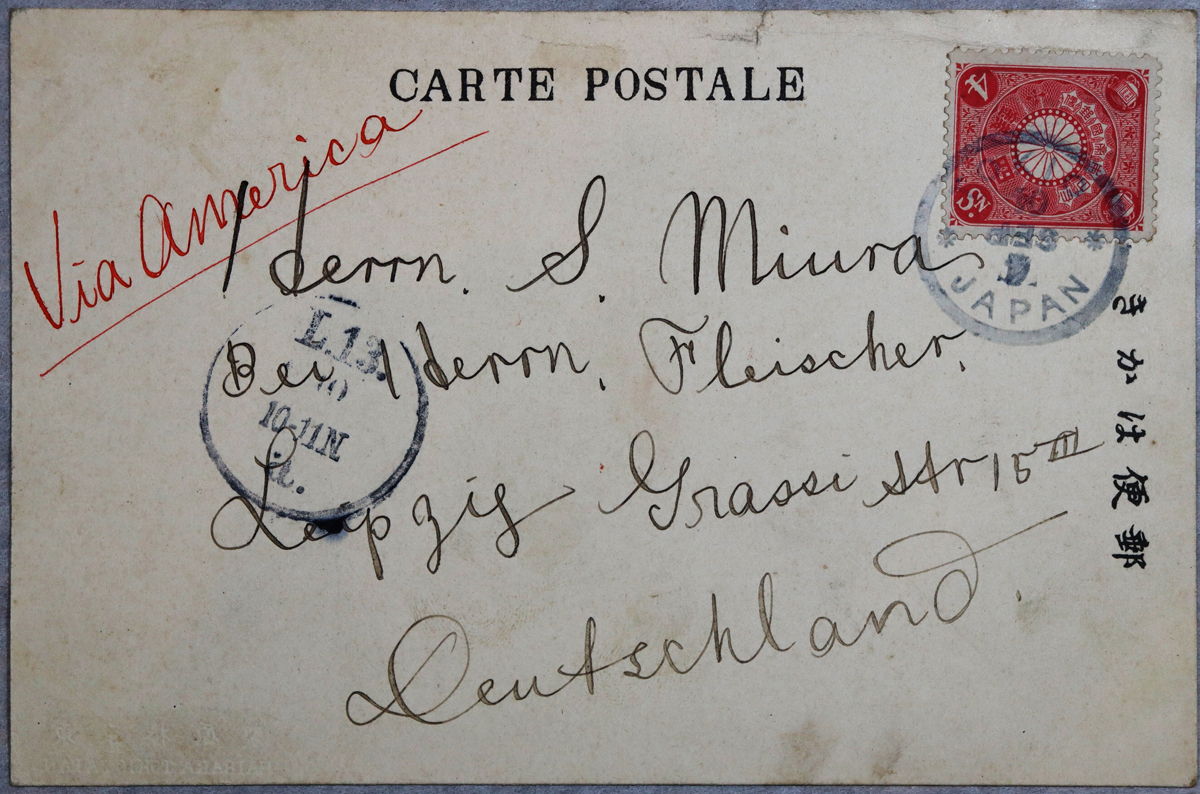 CARTE POSTALE
Via America
Herrn. S. Miura
Bei Herrn. Fleischer.
Leipzig Grassi str 15 III
Deutschland.
きかは便郵
4
SN.
JAPAN
L.13.
10-11N